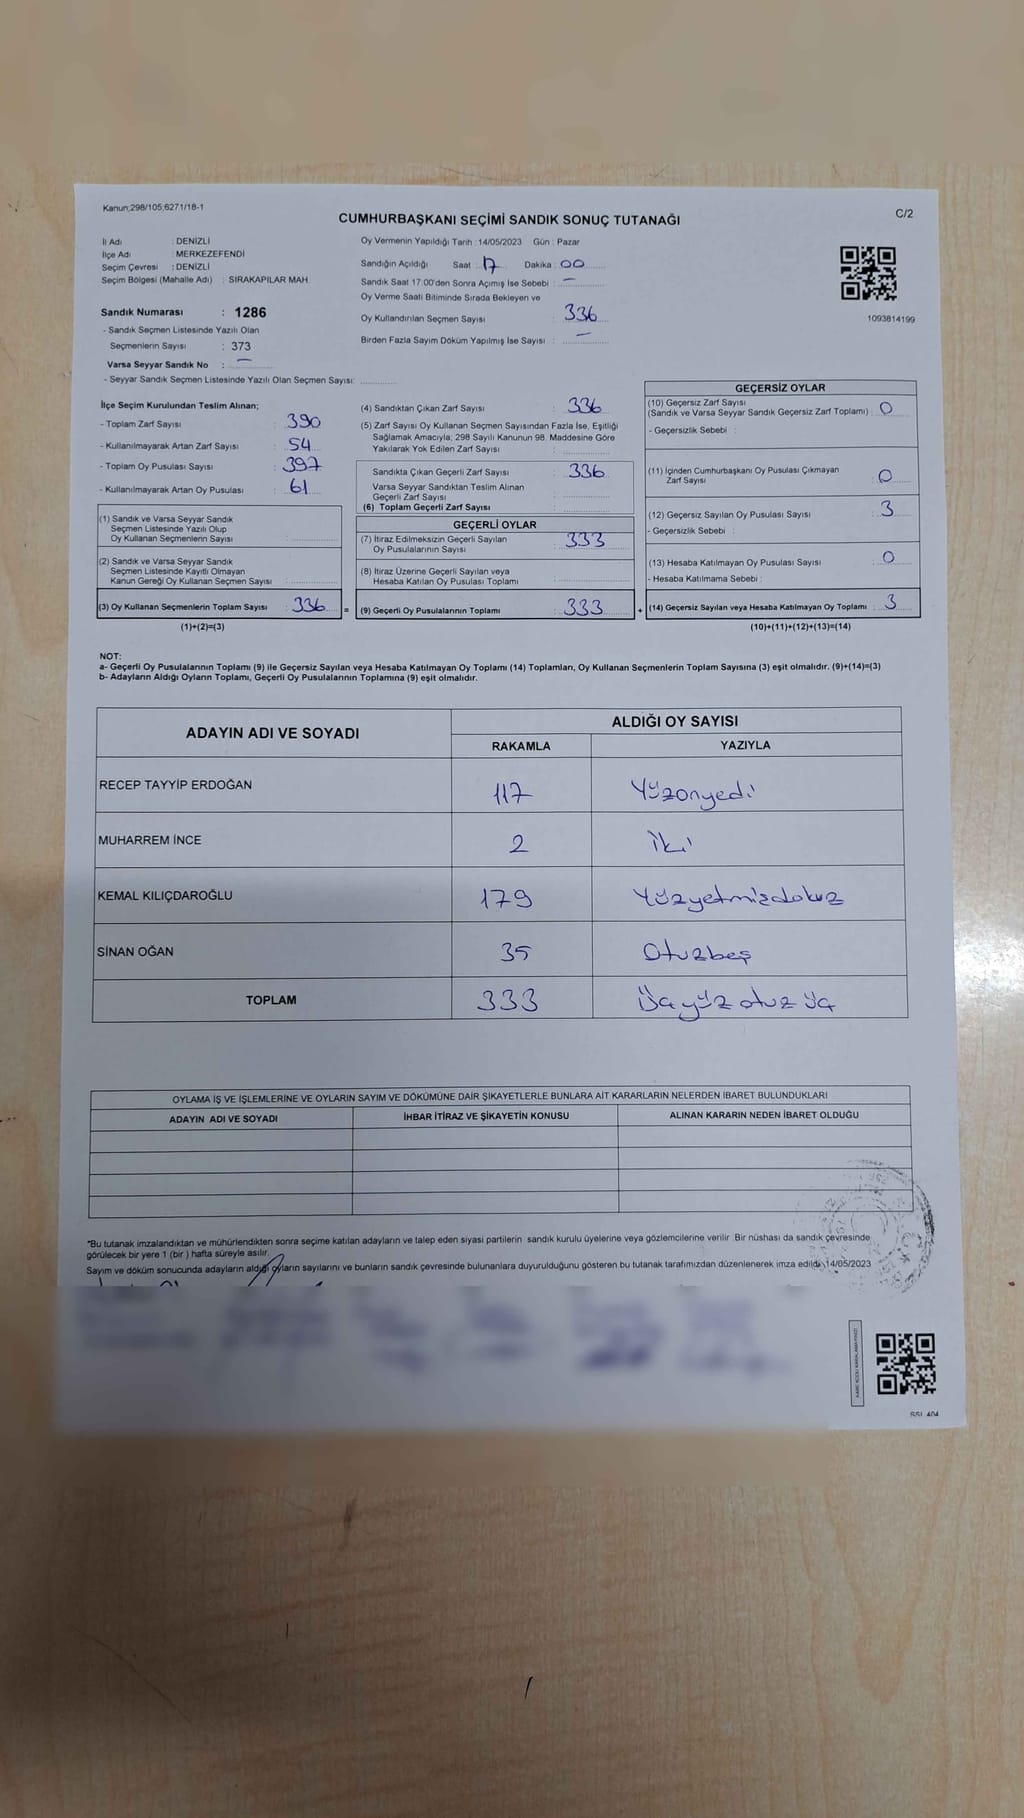 Kanun;298/105,6271/18-1
CUMHURBAŞKANI SEÇİMİ SANDIK SONUÇ TUTANAĞI
C/2
İl Adı : DENİZLİ
İlçe Adı : MERKEZEFENDİ
Seçim Çevresi : DENİZLİ
Seçim Bölgesi (Mahalle Adı) : SIRAKAPILAR MAH.
Sandık Numarası : 1286
- Sandık Seçmen Listesinde Yazılı Olan
Seçmenlerin Sayısı : 373
Varsa Seyyar Sandık No : —
- Seyyar Sandık Seçmen Listesinde Yazılı Olan Seçmen Sayısı:
Oy Vermenin Yapıldığı Tarih :14/05/2023 Gün : Pazar
Sandığın Açıldığı Saat : 17 Dakika : 00
Sandık Saat 17:00'den Sonra Açımış İse Sebebi : —
Oy Verme Saati Bitiminde Sırada Bekleyen ve
Oy Kullandırılan Seçmen Sayısı : 336
Birden Fazla Sayım Döküm Yapılmış İse Sayısı : —
1093814199
İlçe Seçim Kurulundan Teslim Alınan;
- Toplam Zarf Sayısı : 390
- Kullanılmayarak Artan Zarf Sayısı : 54
- Toplam Oy Pusulası Sayısı : 397
- Kullanılmayarak Artan Oy Pusulası : 61
(1) Sandık ve Varsa Seyyar Sandık
Seçmen Listesinde Yazılı Olup
Oy Kullanan Seçmenlerin Sayısı :
(2) Sandık ve Varsa Seyyar Sandık
Seçmen Listesinde Kayıtlı Olmayan
Kanun Gereği Oy Kullanan Seçmen Sayısı :
(3) Oy Kullanan Seçmenlerin Toplam Sayısı : 336 =
(1)+(2)=(3)
(4) Sandıktan Çıkan Zarf Sayısı : 336
(5) Zarf Sayısı Oy Kullanan Seçmen Sayısından Fazla İse, Eşitliği
Sağlamak Amacıyla; 298 Sayılı Kanunun 98. Maddesine Göre
Yakılarak Yok Edilen Zarf Sayısı :
Sandıkta Çıkan Geçerli Zarf Sayısı : 336
Varsa Seyyar Sandıktan Teslim Alınan
Geçerli Zarf Sayısı :
(6) Toplam Geçerli Zarf Sayısı :
GEÇERLİ OYLAR
(7) İtiraz Edilmeksizin Geçerli Sayılan
Oy Pusulalarının Sayısı : 333
(8) İtiraz Üzerine Geçerli Sayılan veya
Hesaba Katılan Oy Pusulası Toplamı :
(9) Geçerli Oy Pusulalarının Toplamı : 333 +
GEÇERSİZ OYLAR
(10) Geçersiz Zarf Sayısı
(Sandık ve Varsa Seyyar Sandık Geçersiz Zarf Toplamı) : 0
- Geçersizlik Sebebi :
(11) İçinden Cumhurbaşkanı Oy Pusulası Çıkmayan
Zarf Sayısı : 0
(12) Geçersiz Sayılan Oy Pusulası Sayısı : 3
- Geçersizlik Sebebi :
(13) Hesaba Katılmayan Oy Pusulası Sayısı : 0
- Hesaba Katılmama Sebebi :
(14) Geçersiz Sayılan veya Hesaba Katılmayan Oy Toplamı : 3
(10)+(11)+(12)+(13)=(14)
NOT:
a- Geçerli Oy Pusulalarının Toplamı (9) ile Geçersiz Sayılan veya Hesaba Katılmayan Oy Toplamı (14) Toplamları, Oy Kullanan Seçmenlerin Toplam Sayısına (3) eşit olmalıdır. (9)+(14)=(3)
b- Adayların Aldığı Oyların Toplamı, Geçerli Oy Pusulalarının Toplamına (9) eşit olmalıdır.
ADAYIN ADI VE SOYADI ALDIĞI OY SAYISI
RAKAMLA YAZIYLA
RECEP TAYYİP ERDOĞAN 117 Yüzonyedi
MUHARREM İNCE 2 İki
KEMAL KILIÇDAROĞLU 179 Yüzyetmişdokuz
SİNAN OĞAN 35 Otuzbeş
TOPLAM 333 Üçyüz otuz üç
OYLAMA İŞ VE İŞLEMLERİNE VE OYLARIN SAYIM VE DÖKÜMÜNE DAİR ŞİKAYETLERLE BUNLARA AİT KARARLARIN NELERDEN İBARET BULUNDUKLARI
ADAYIN ADI VE SOYADI İHBAR İTİRAZ VE ŞİKAYETİN KONUSU ALINAN KARARIN NEDEN İBARET OLDUĞU
*Bu tutanak imzalandıktan ve mühürlendikten sonra seçime katılan adayların ve talep eden siyasi partilerin sandık kurulu üyelerine veya gözlemcilerine verilir .Bir nüshası da sandık çevresinde
görülecek bir yere 1 (bir ) hafta süreyle asılır.
Sayım ve döküm sonucunda adayların aldığı oyların sayılarını ve bunların sandık çevresinde bulunanlara duyurulduğunu gösteren bu tutanak tarafımızdan düzenlenerek imza edildi. 14/05/2023